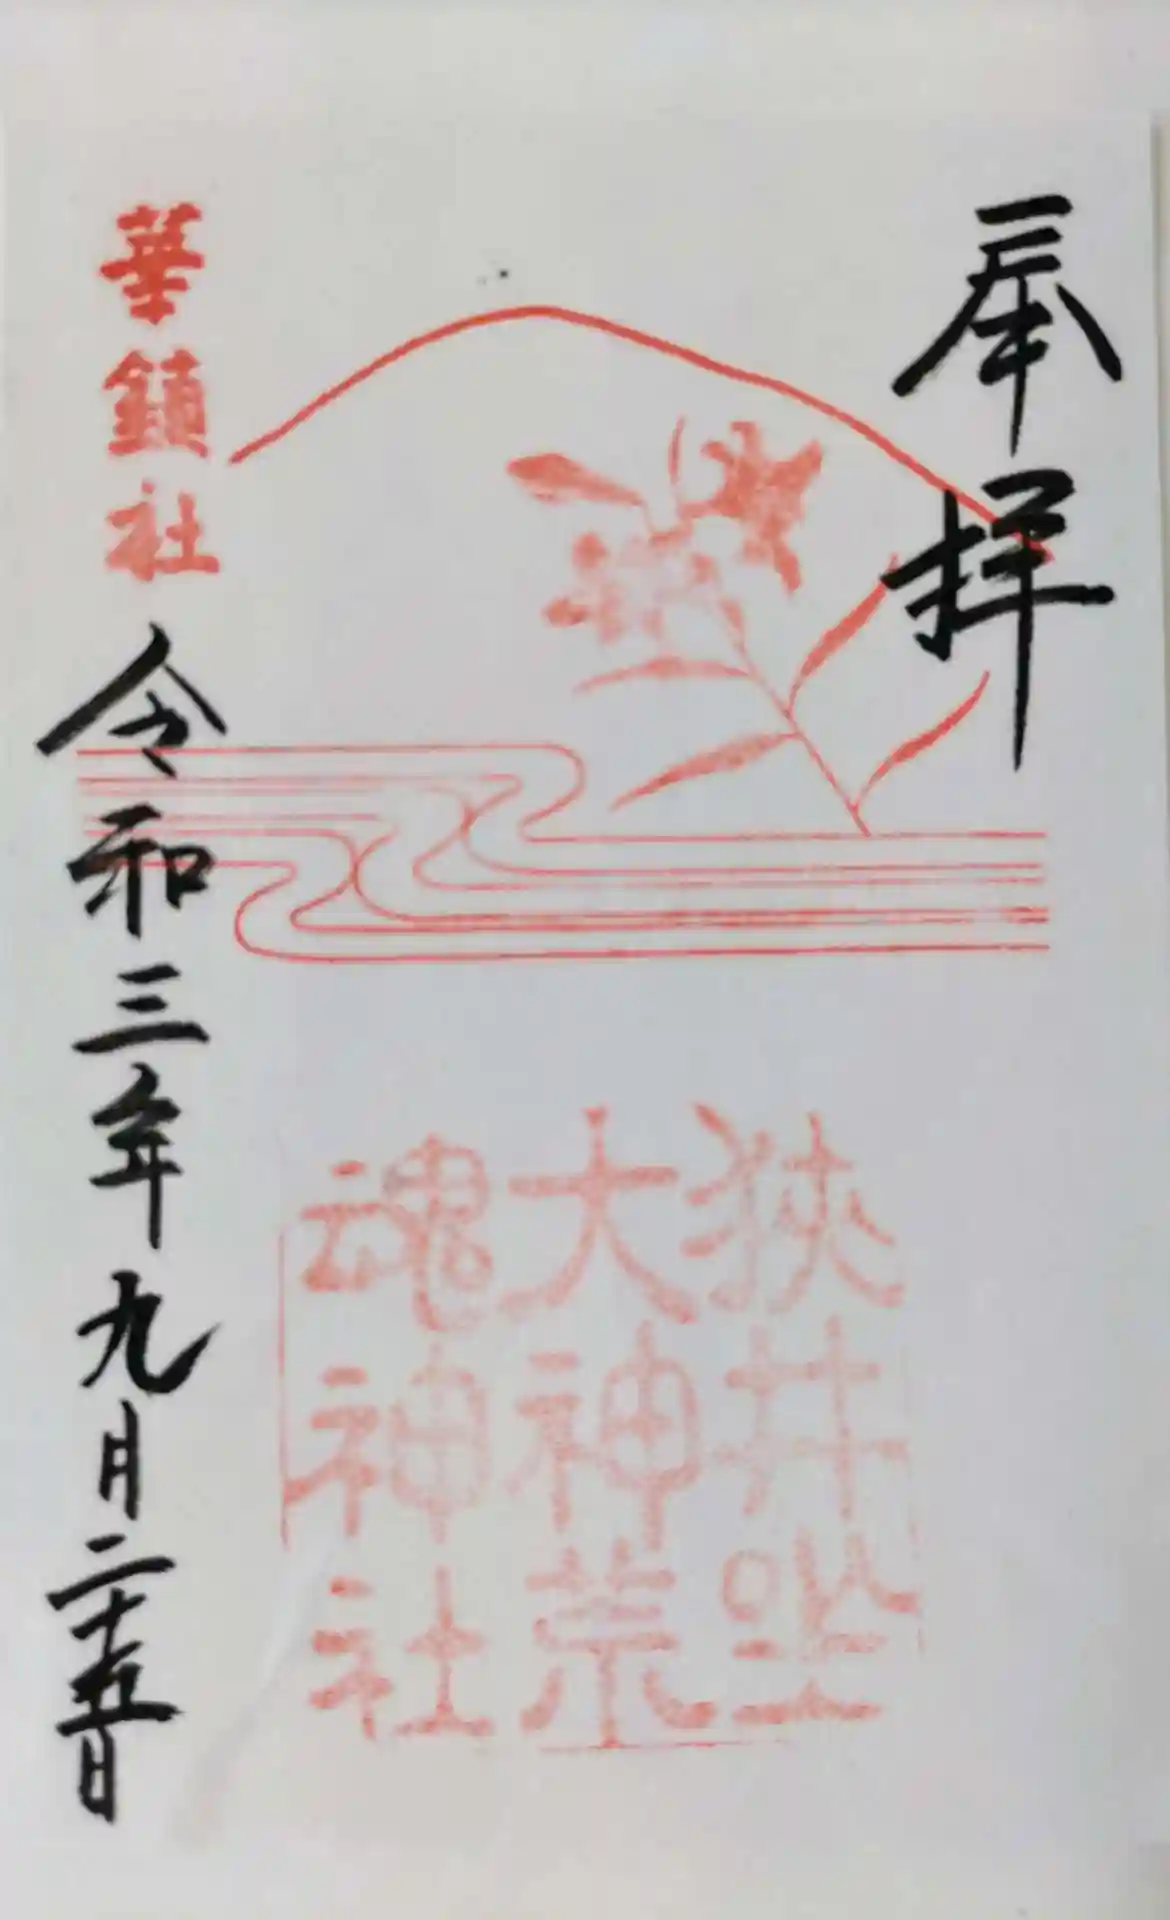 奉拝
狭井坐
大神荒
魂神社
華鎮社
令和三年九月二十五日